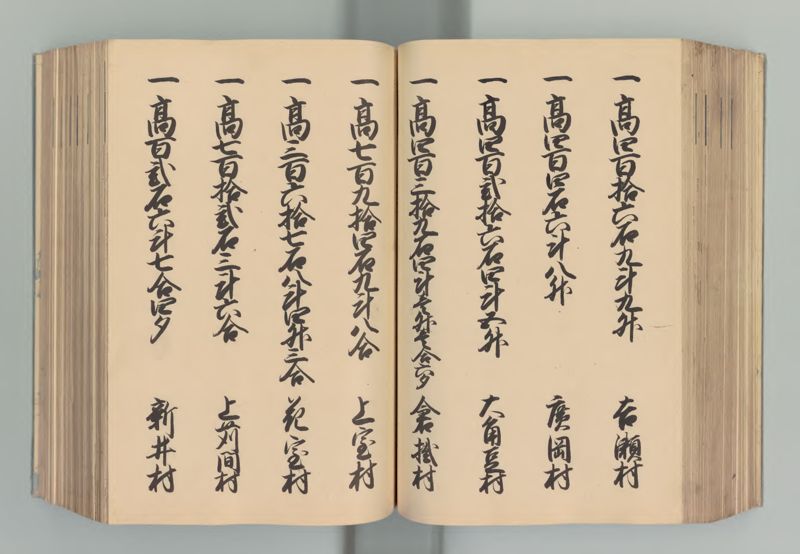 一高四百拾六石九斗九升 吉瀬村
一高四百四石六斗八升 廣岡村
一高四百弐拾六石四斗五升 大角豆村
一高四百三拾九石四斗壱升壱合六夕 倉掛村
一高七百九拾四石九斗八合 上室村
一高三百六拾七石八斗四升三合 花室村
一高七百拾弐石三斗六合 上苅間村
一高百弐石六斗七合四夕 新井村